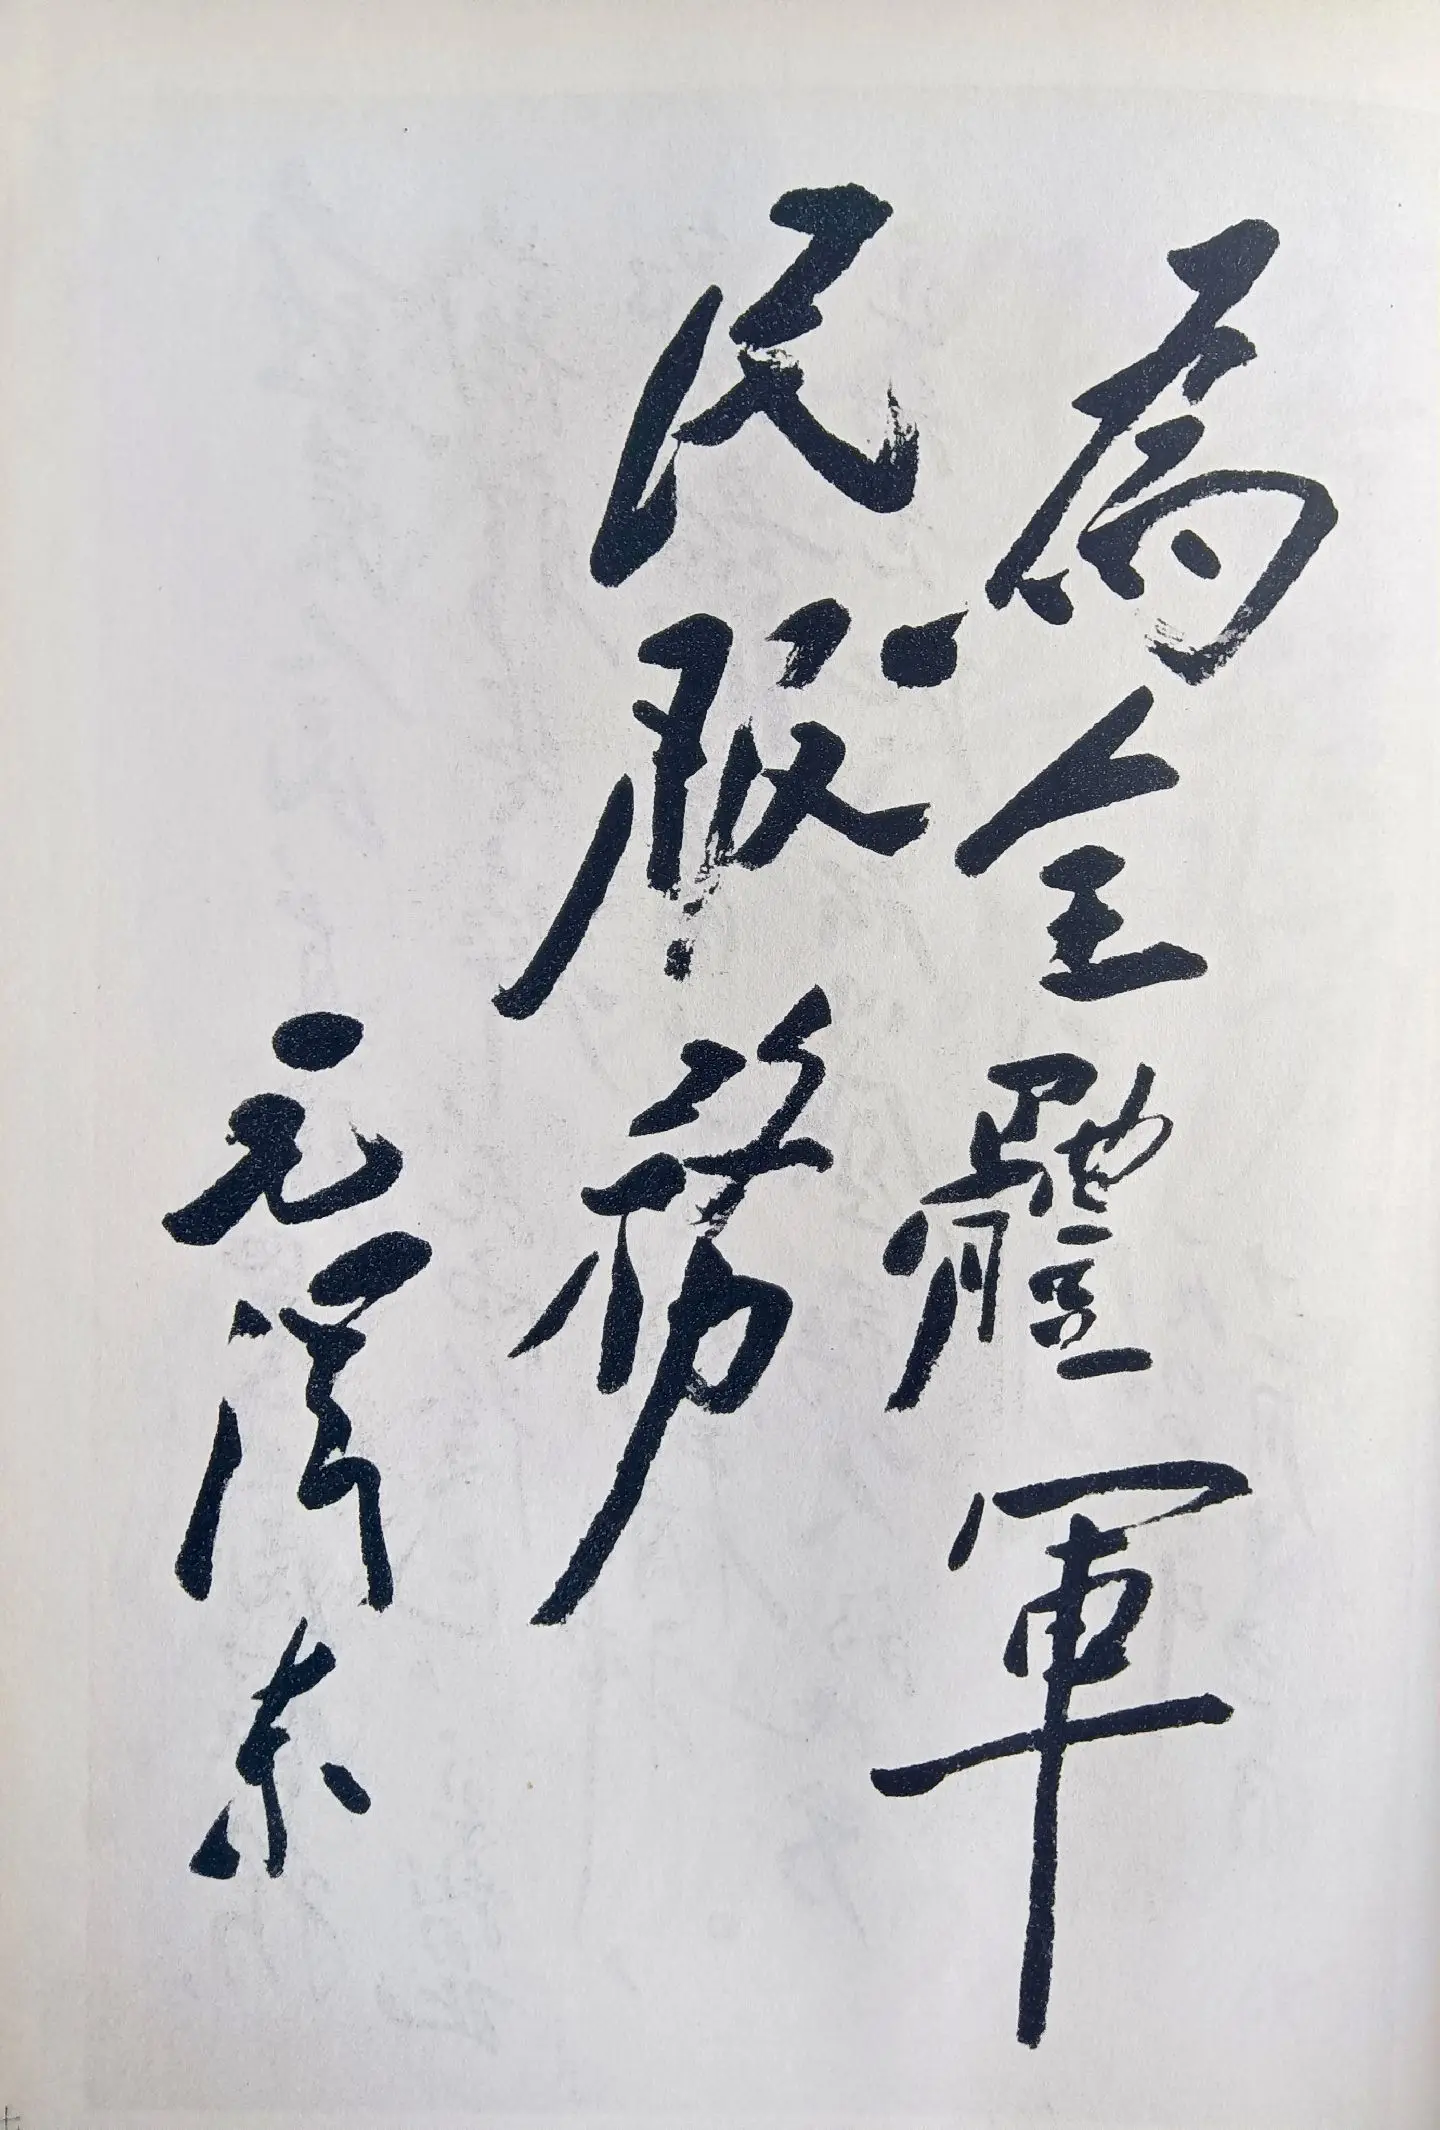 為全體軍
民服務
毛澤東